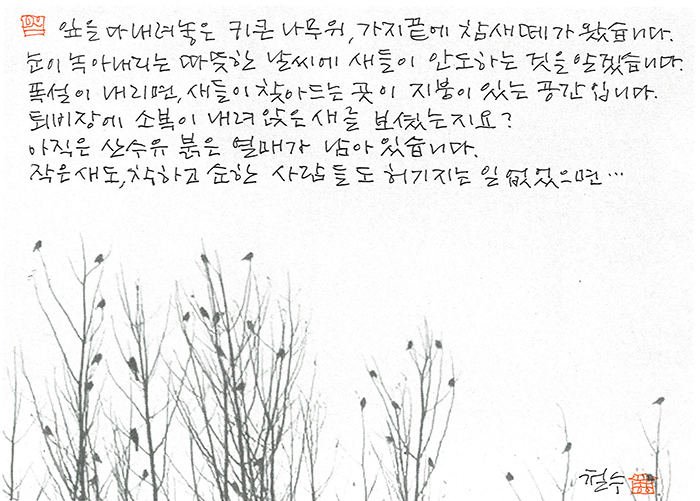 잎을 다 내려놓은 키큰 나무위, 가지끝에 참새떼가 왔습니다.
눈이 녹아내리는 따뜻한 날씨에 새들이 안도하는 것을 알겠습니다.
폭설이 내리면, 새들이 찾아드는 곳이 지붕이 있는 공간입니다.
퇴비장에 소복이 내려 앉은 새를 보셨는지요?
아직은 산수유 붉은 열매가 남아 있습니다.
작은 새도, 착하고 순한 사람들도 허기지는 일 없었으면…
철수